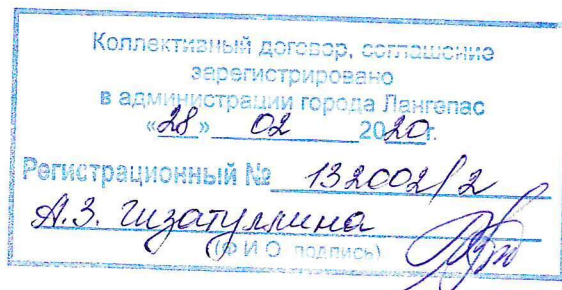 Коллективный договор, соглашение
зарегистрировано
в администрации города Лангепас
«28» 02 2020г.
Регистрационный № 132002/2
А.З. Гизатуллина
(Ф И О подпись)